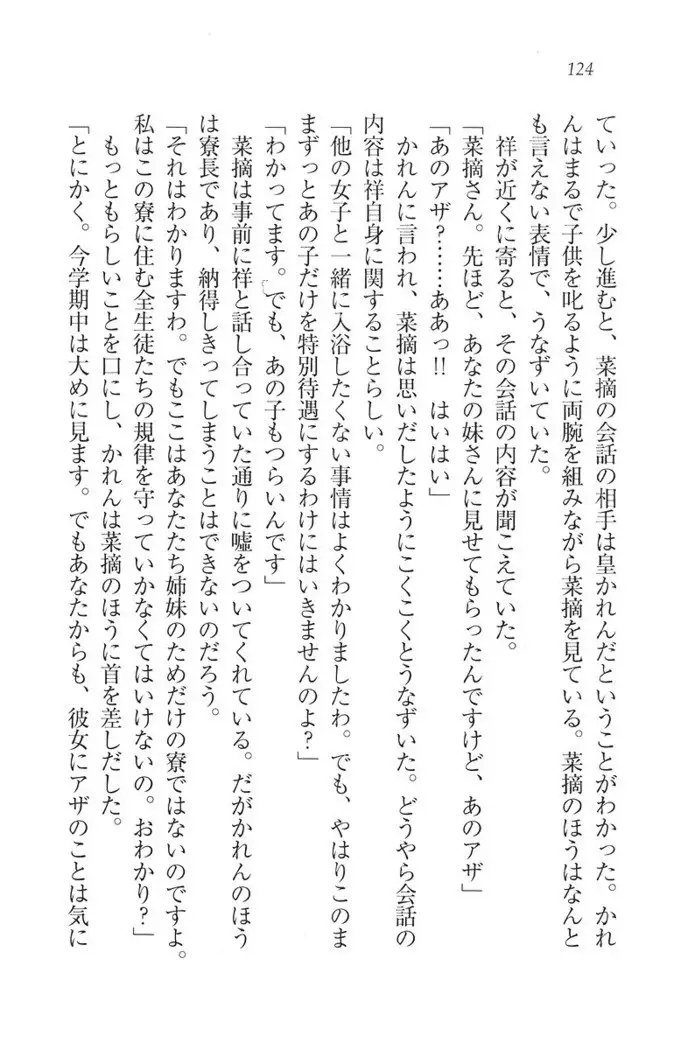 124
ていった。少し進むと、菜摘の会話の相手は皇かれんだということがわかった。かれ
んはまるで子供を叱るように両腕を組みながら菜摘を見ている。菜摘のほうはなんと
も言えない表情で、うなずいていた。
祥が近くに寄ると、その会話の内容が聞こえていた。
「菜摘さん。先ほど、あなたの妹さんに見せてもらったんですけど、あのアザ」
「あのアザ?……ああっ!!　はいはい」
かれんに言われ、菜摘は思いだしたようにこくこくとうなずいた。どうやら会話の
内容は祥自身に関することらしい。
「他の女子と一緒に入浴したくない事情はよくわかりましたわ。でも、やはりこのま
まずっとあの子だけを特別待遇にするわけにはいきませんのよ?」
「わかってます。でも、あの子もつらいんです」
菜摘は事前に祥と話し合っていた通りに嘘をついてくれている。だがかれんのほう
は寮長であり、納得しきってしまうことはできないのだろう。
「それはわかりますわ。でもここはあなたたち姉妹のためだけの寮ではないのですよ。
私はこの寮に住む全生徒たちの規律を守っていかなくてはいけないの。おわかり?」
もっともらしいことを口にし、かれんは菜摘のほうに首を差しだした。
「とにかく。今学期中は大めに見ます。でもあなたからも、彼女にアザのことは気に